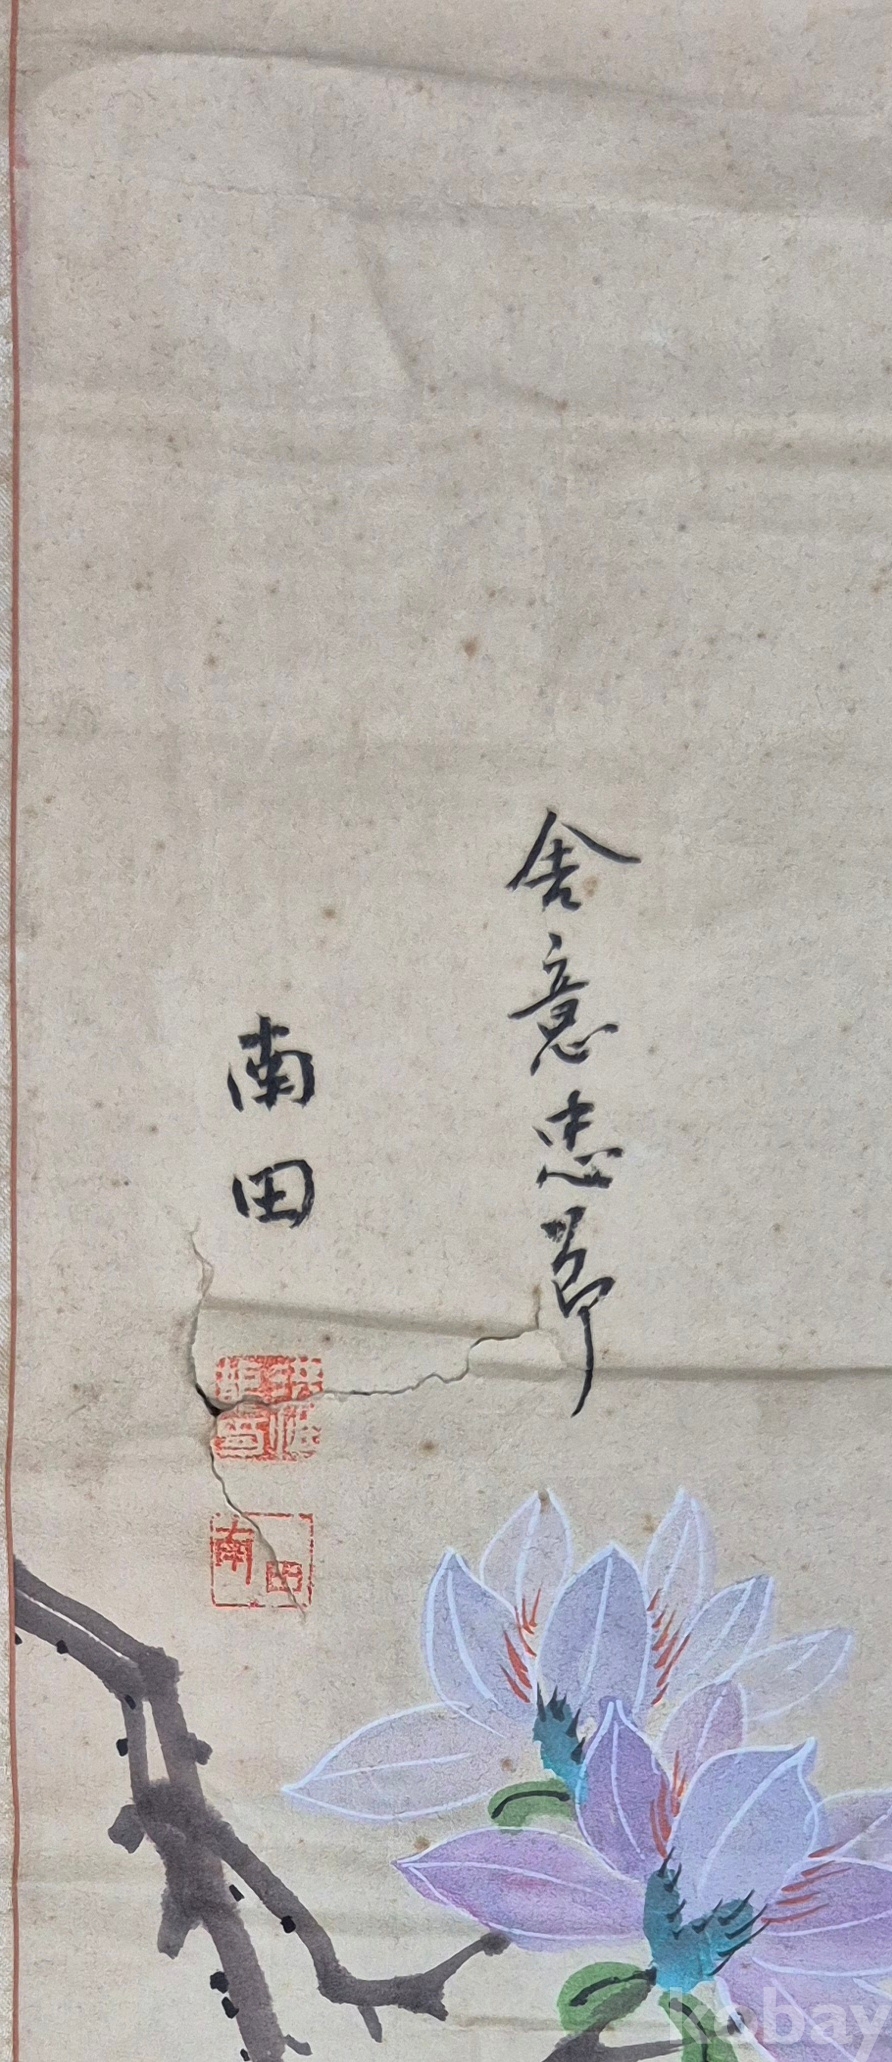 舍意忠節
南田
南田
kobay